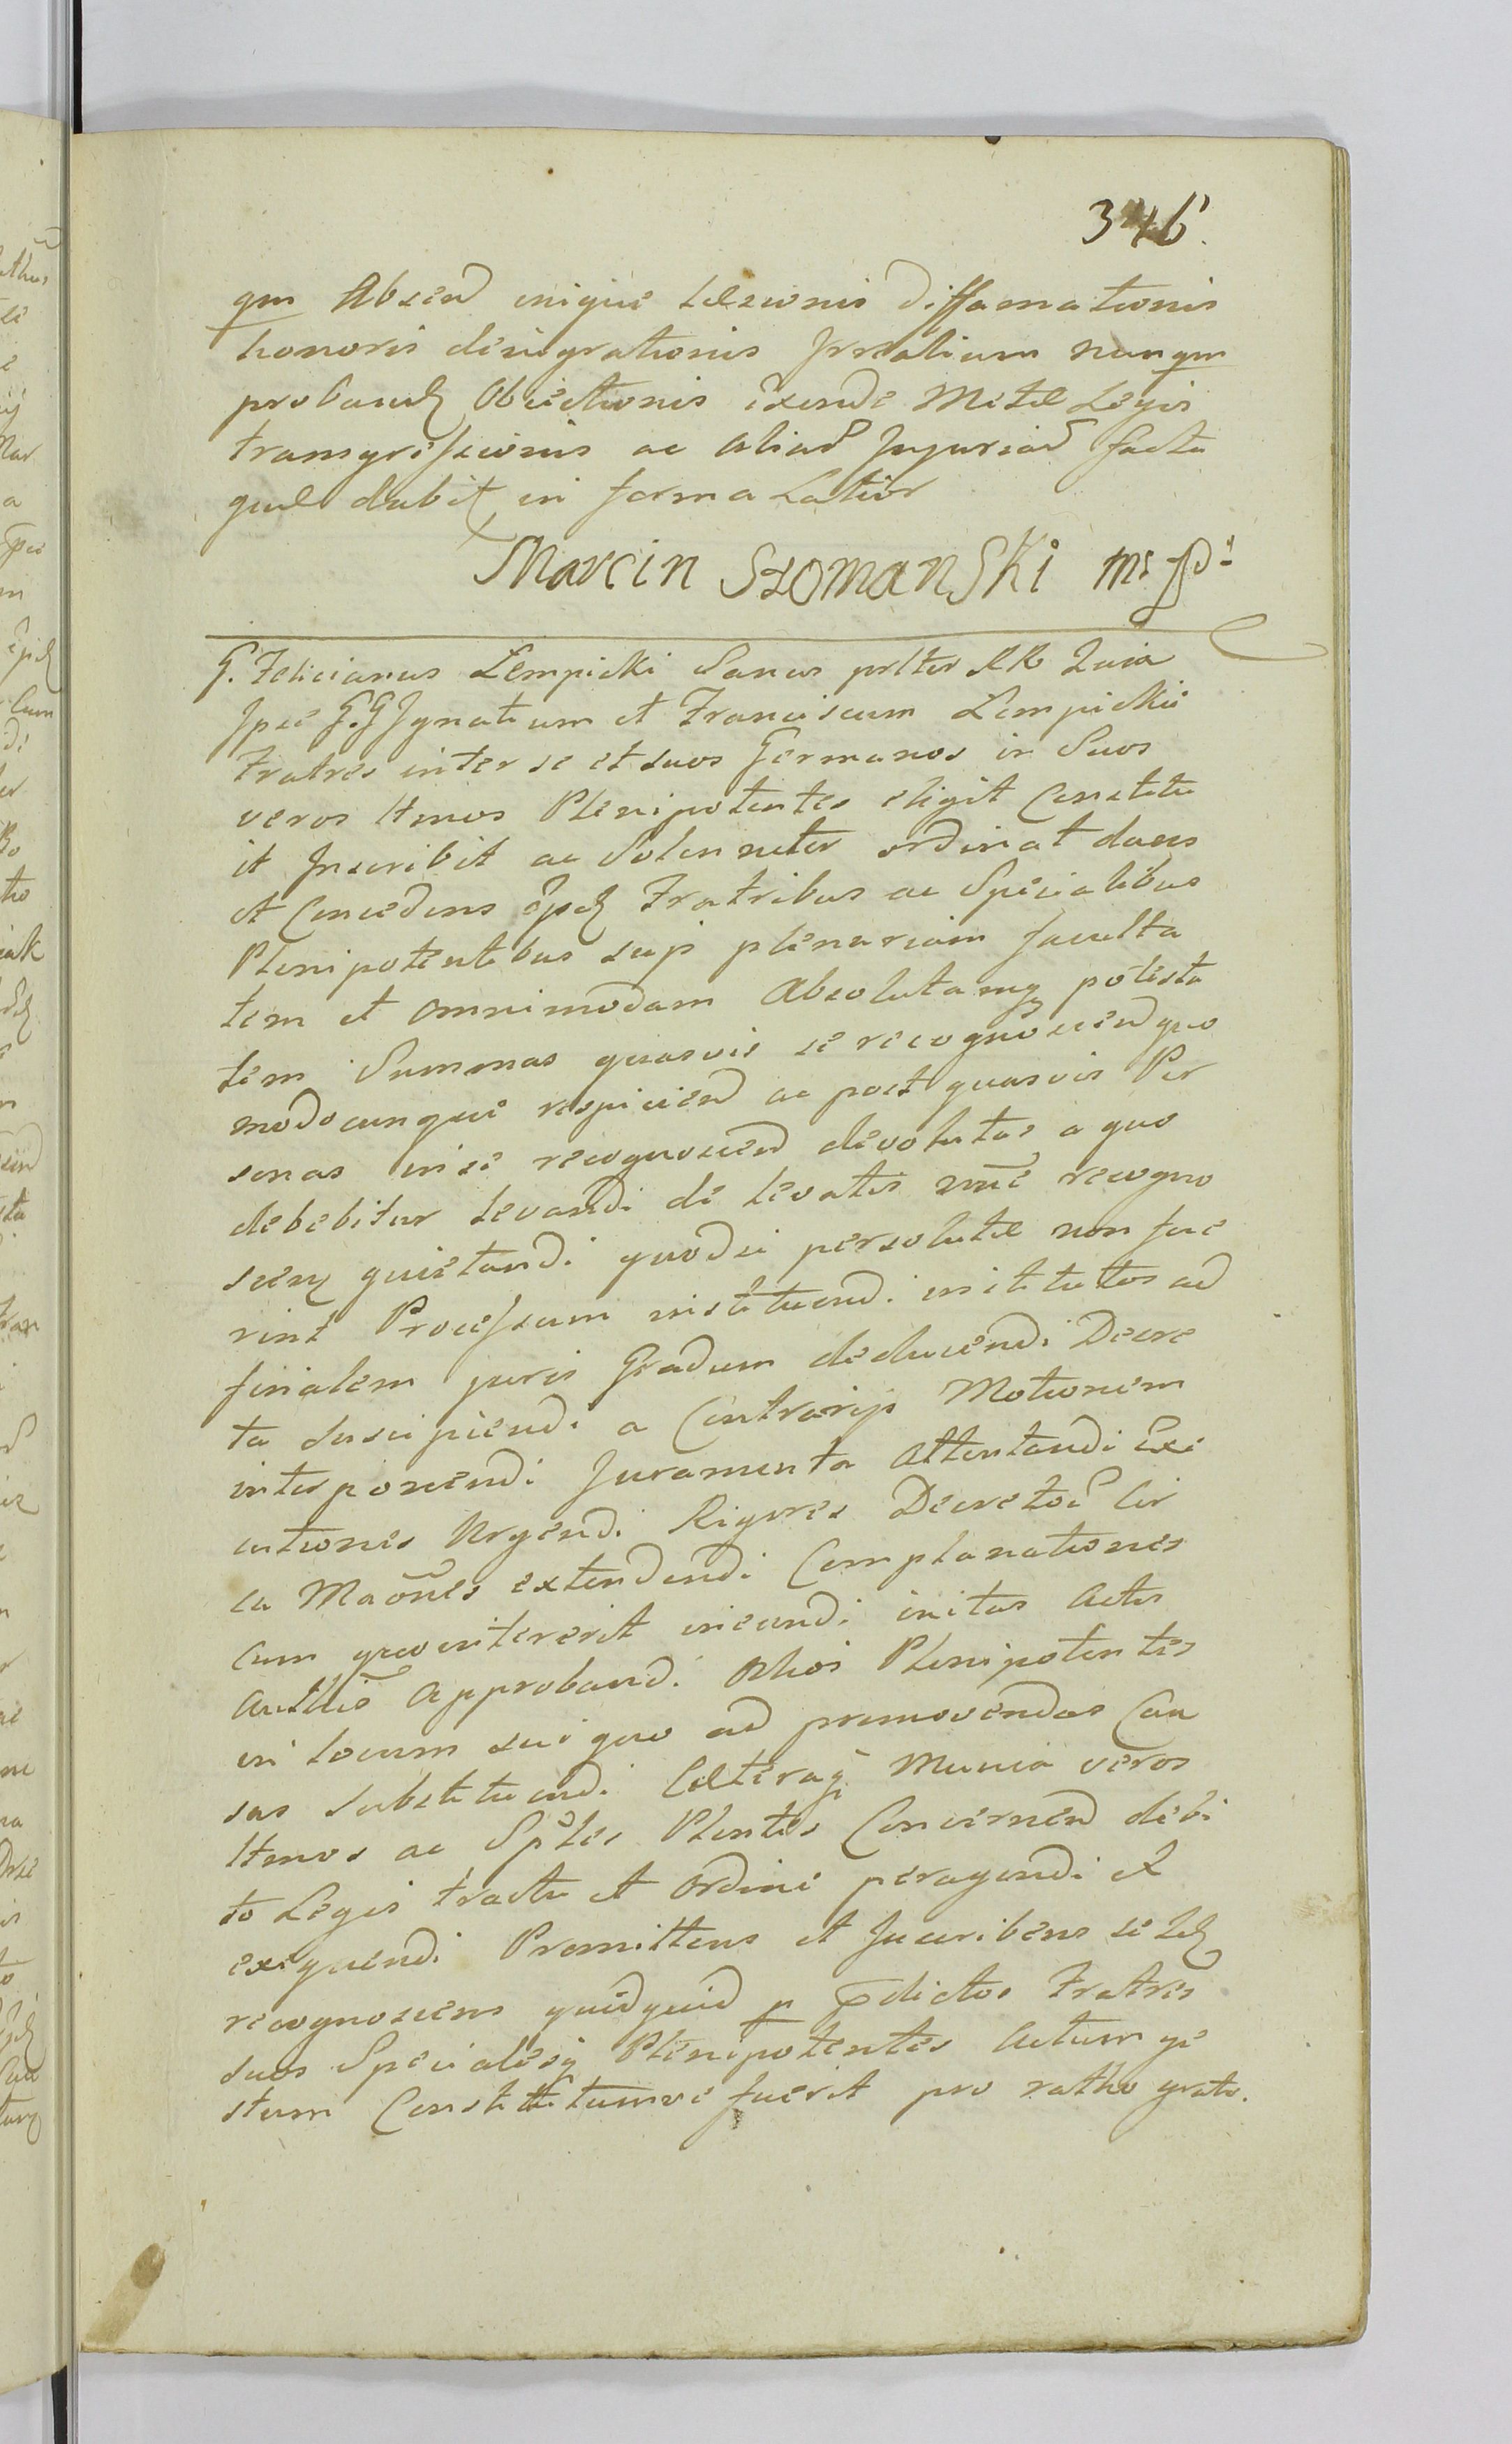 346.
qm Absend inique Læsionis diffamationis
honoris denigrationis prœalium nunqm
proband Obiectionis exinde Metæ Legis
transgressionis ac aliad Injuriad facta
quæ dabit in forma Latior
Marcin Szomanski mp
G. Felicianus Lempicki Sanus prlter RR Quia
Ipse G.G Ignatium et Franciscum Lempickie
Fratres inter se et suos Germanos in Suos
veros ltmos Plenipotentes eligit Constitu
it Inscribit ac Solenniter ordinat dans
et Concedens Fratribus ac Specialibus
Plenipotentibus suis plenariam faculta
tem et omnimodam Absolutamq potesta
tem Summas quasvis se recognoscend quo
modocunque respiciend ac post quasvis Per
sonas in se recognoscend devolutas a quo
debebitur Levandi de levatis nnē recogno
scen quietandi quodsi persolutæ non fue
rint Processum instituendi institutos ad
finalem juris Gradum deducendi Decre
ta suscipiendi a Contrarijs Motionem
interponendi Juramenta Attentandi Exe
cutiones Urgendi Rigores Decretor Cir
ca Maōnes extendendi Complanationes
Cum quo intererit ineundi initas Actis
Authis Approband. Alios Plenipotentes
in locum sui quo ad promovendas Cau
sas substituendi Cæteraq Munia veros
ltmos ac Spēles Plentes Concernen debi
to Legis tractu et Ordine peragendi et
exequendi Promittens et Inscribens se
recognoscens quidquid p p̄dictos Fratres
suos Specialesq Plenipotentes Actum ge
stum Constitutumve fuerit pro ratho grato.